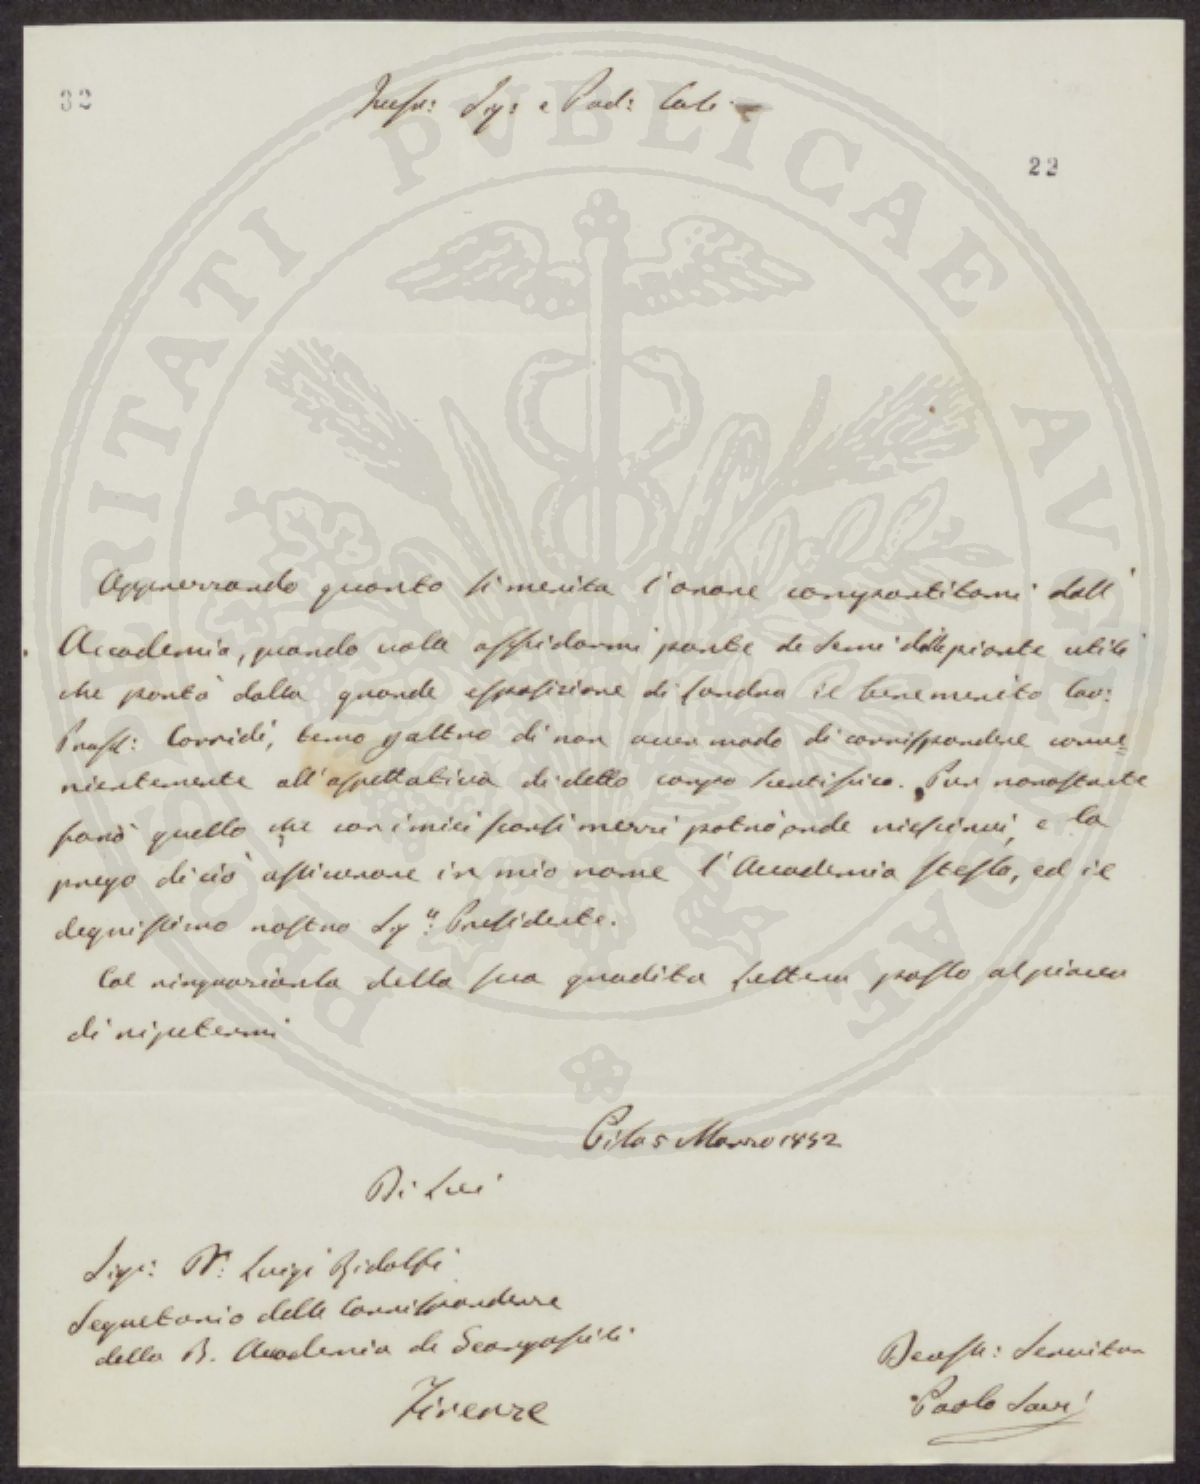 32
Pregiat: Sig: e Pad: Col:
22
Apprezzando quanto si merita l'onore compartitomi dall'
Accademia, quando volle affidarmi parte de semi delle piante utili
che portò dalla grande esposizione di Londra il benemerito Cav:
Profss: Corridi, temo peraltro di non aver modo di corrispondere conve=
nientemente all'aspettativa di detto corpo scentifico. Pur nonostante
farò quello che con i miei scarsi mezzi potrò onde riescirvi, e la
prego di ciò assicurare in mio nome l'Accademia stessa, ed il
degnissimo nostro Sigr: Presidente.
Col ringraziarla della sua gradita lettera passo al piacer
di ripetermi
Pisa 5 Marzo 1852
Di Lei
Sigr: Dr: Luigi Ridolfi
Segretario delle Corrispondenze
della R. Accademia de Georgofili
Firenze
Devoss: Servitor
Paolo Savi
PROSPERITATI PVBLICAE AVGENDAE